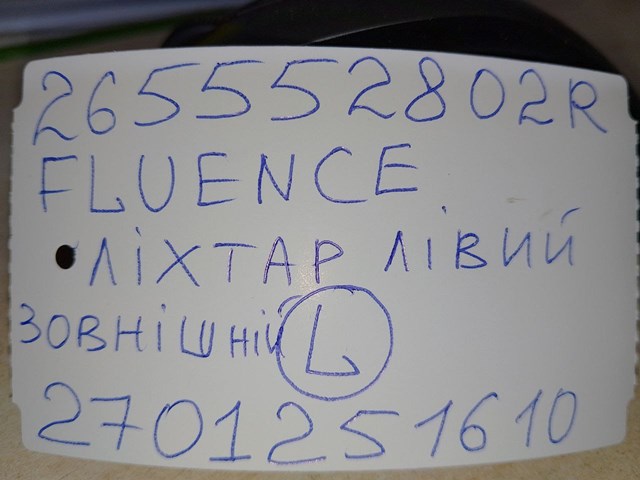 2655552802R
FLUENCE
• ЛІХТАР ЛІВИЙ
ЗОВНІШНІЙ L
2701251610